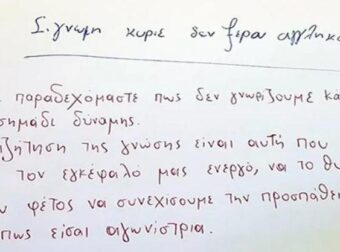 Σ.γνωμη κυριε δεν ξερω αγγλικα
παραδεχόμαστε πως δεν γνωρίζουμε κά
σημάδι δύναμης.
ζήτηση της γνώσης είναι αυτή που
τον εγκέφαλό μας ενεργό, να το θυ
φέτος να συνεχίσουμε την προσπάθει
πως είσαι αγωνίστρια.